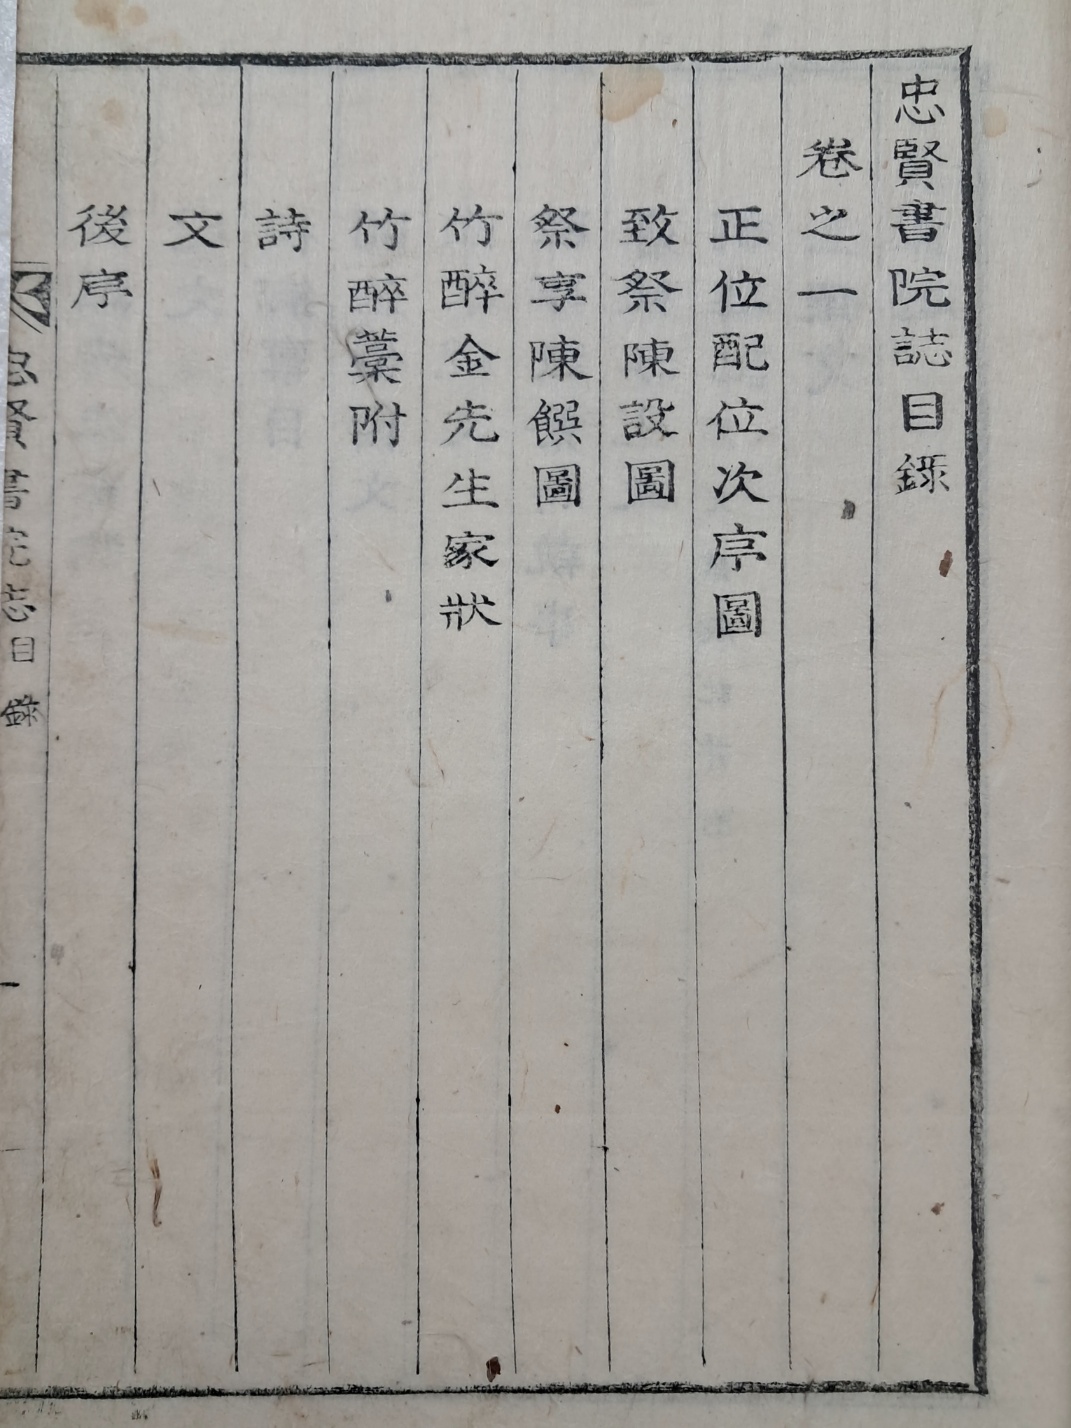 忠賢書院誌目錄
卷之一
正位配位次序圖
致祭陳設圖
祭享陳饌圖
竹醉金先生家狀
竹醉藁附
詩
文
後序
忠賢書院志目錄
一